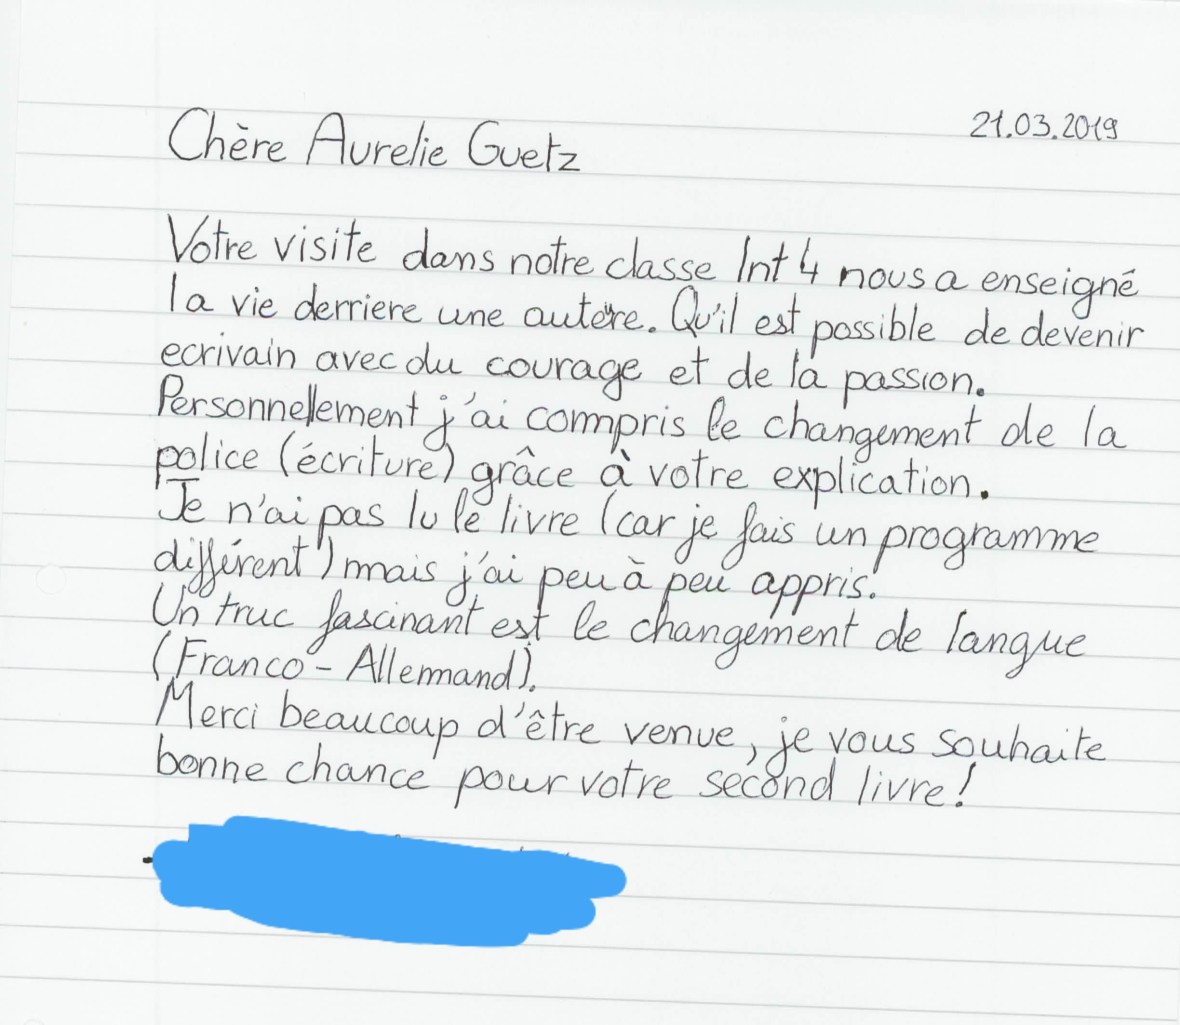 21.03.2019
Chère Aurelie Guetz
Votre visite dans notre classe Int 4 nous a enseigné
la vie derriere une autère. Qu'il est possible de devenir
ecrivain avec du courage et de la passion.
Personnellement j'ai compris le changement de la
police (écriture) grâce à votre explication.
Je n'ai pas lu le livre (car je fais un programme
différent) mais j'ai peu à peu appris.
Un truc fascinant est le changement de langue
(Franco-Allemand).
Merci beaucoup d'être venue, je vous souhaite
bonne chance pour votre second livre!